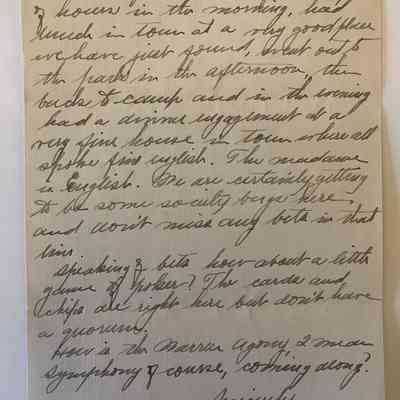 of hours in the morning, had
lunch in town at a very good place
we have just found, went out to
the park in the afternoon, then
back to camp and in the evening
had a dinner engagement at a
very fine house in town where all
spoke fine english. The madame
is English. We are certainly getting
to be some society bugs here,
and don't miss any bets in that
line.
Speaking of bets how about a little
game of poker? The cards and
chips are right here but don't have
a quorum.
How is the Warren Agony, I mean
Symphony of course, coming along?